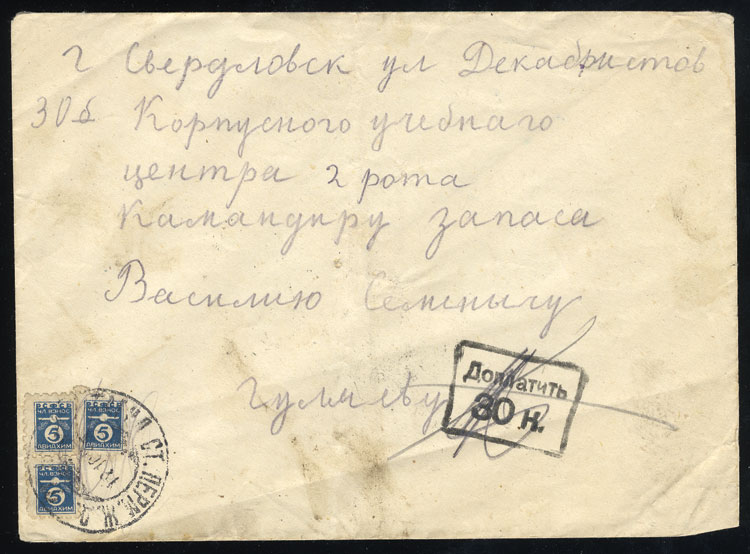 г Свердловск ул Декабристов
30б Корпусного учебнаго
центра 2 рота
Командиру запаса
Василию Семенычу
Гуляеву
Доплатить
30 н.
ЧЛ. ВЗНОС
5
АВИАХИМ
ЧЛ. ВЗНОС
5
АВИАХИМ
5
АВИАХИМ
СТ. ПЕРМ. Ж. Д.